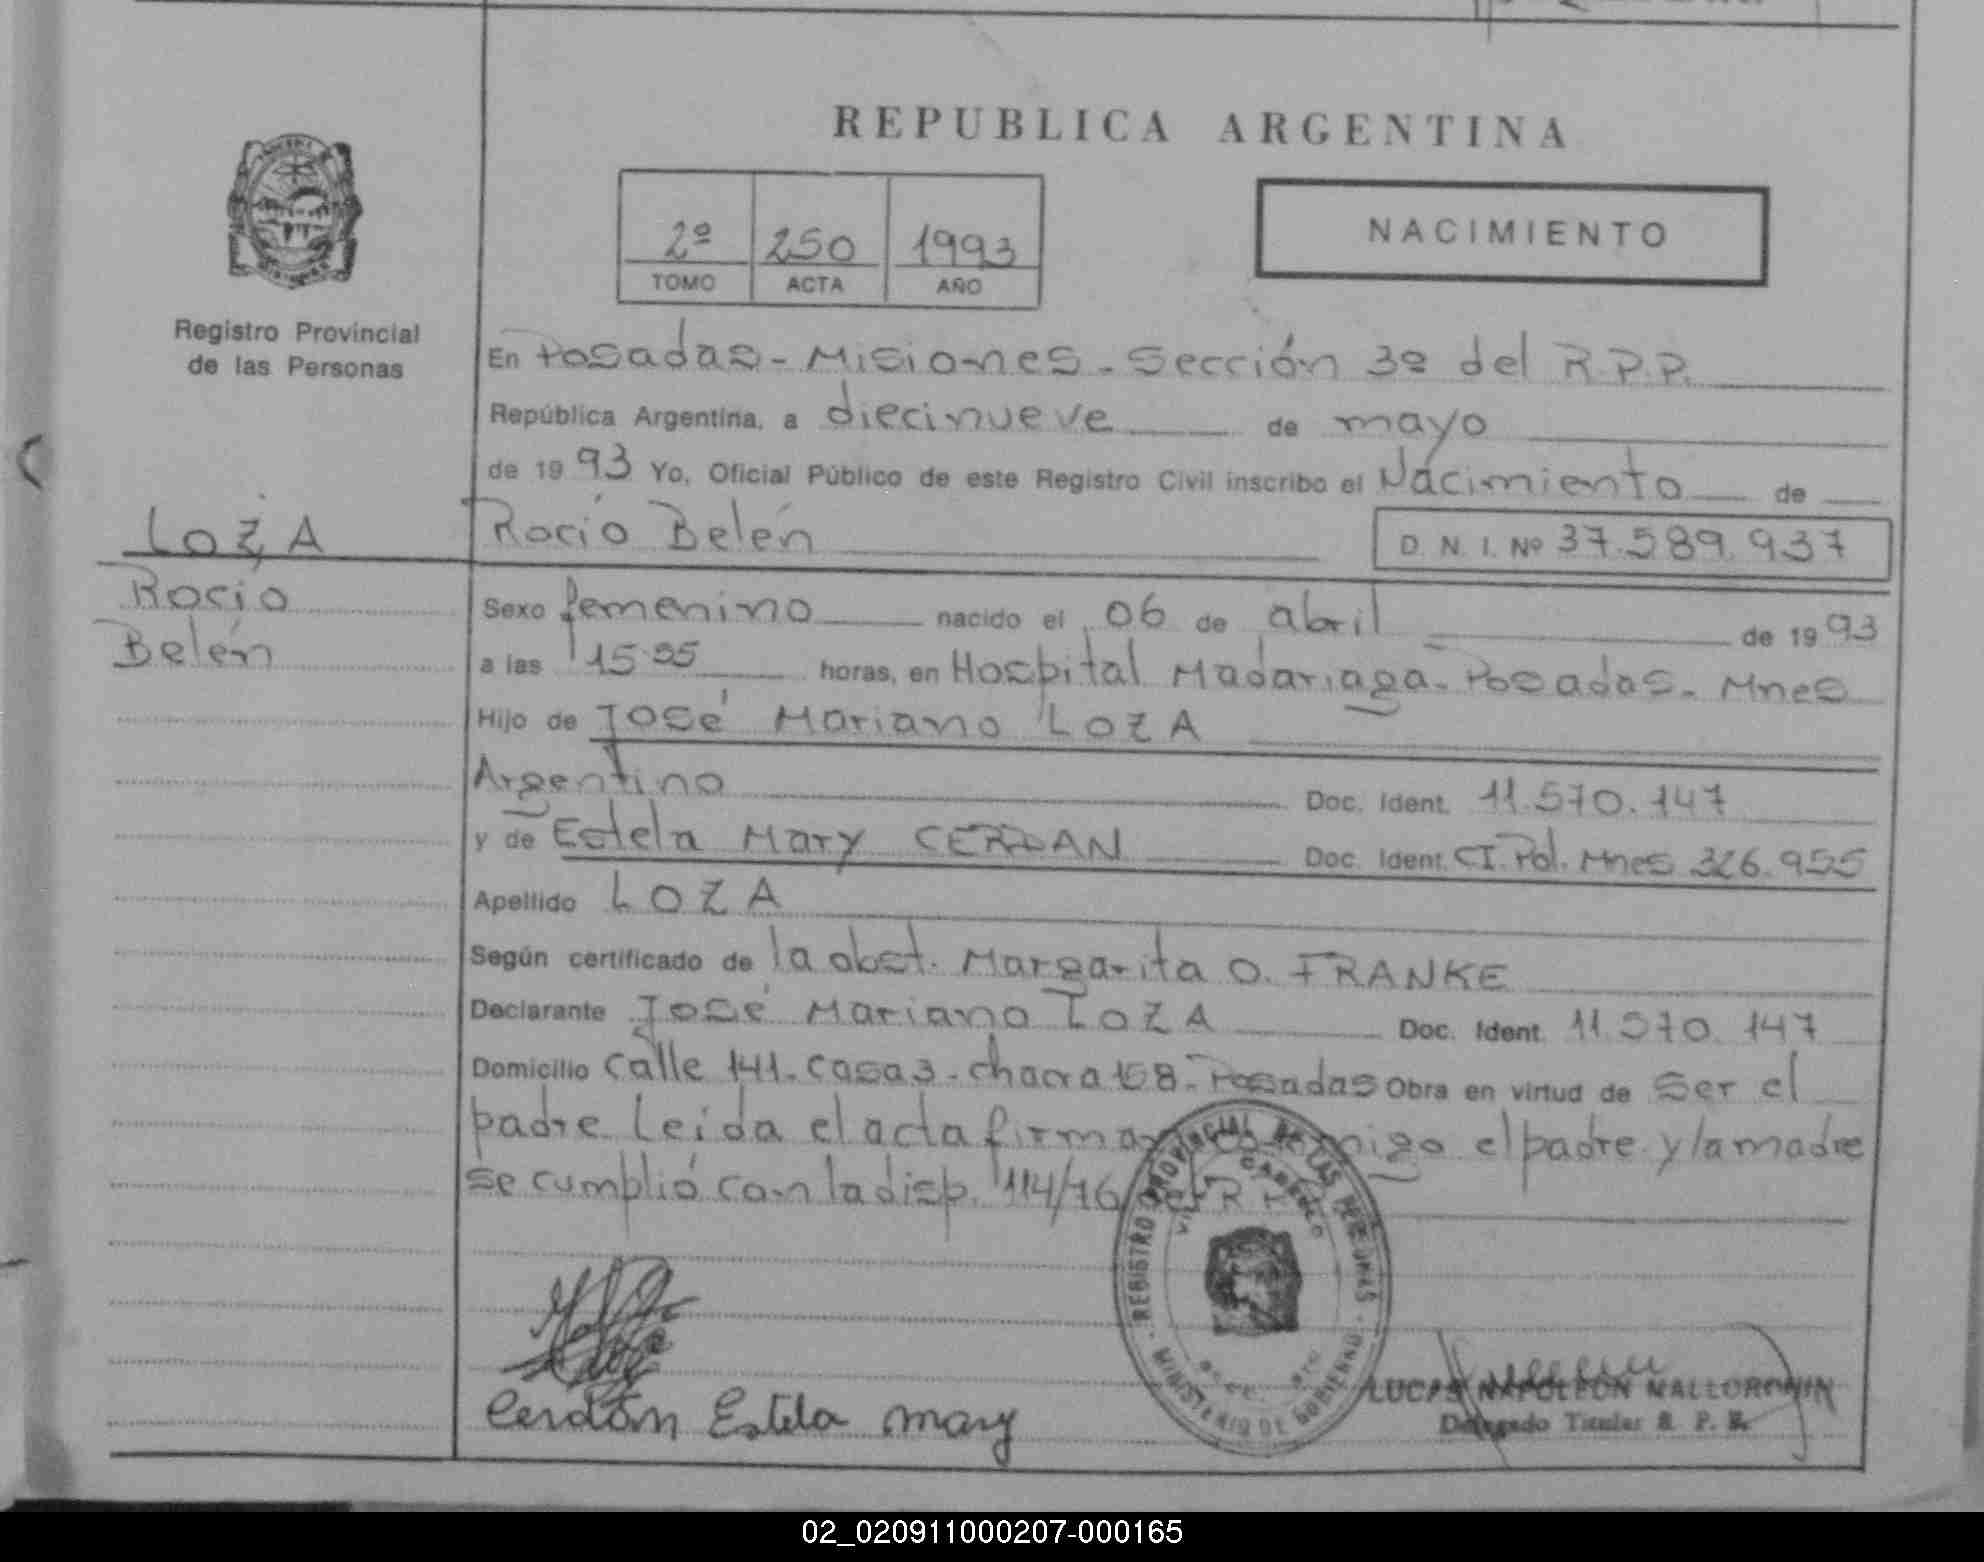 REPUBLICA ARGENTINA
2º 250 1993
TOMO ACTA AÑO
NACIMIENTO
Registro Provincial
de las Personas
LOZA
Rocío
Belén
En Posadas - Misiones - Sección 3º del R.P.P.
República Argentina, a diecinueve de mayo
de 1993 Yo, Oficial Público de este Registro Civil inscribo el Nacimiento de
Rocío Belén D. N. I. Nº 37.589.937
Sexo femenino nacido el 06 de abril de 1993
a las horas, en Hospital Madariaga - Posadas - Mnes
Hijo de José Mariano LOZA
Argentino Doc. Ident. 11.570.147
y de Estela Mary CERDAN Doc. Ident. CI. Pol. Mnes 326.955
Apellido LOZA
Según certificado de la obst. Margarita O. FRANKE
Declarante José Mariano LOZA Doc. Ident. 11.570.147
Domicilio calle 141 - casa 3 - chacra 158 - Posadas Obra en virtud de ser el
padre Leída el acta firman conmigo el padre y la madre
se cumplió con la disp. 114/76
REGISTRO PROVINCIAL DE LAS PERSONAS
MINISTERIO DE GOBIERNO
Cerdán Estela Mary
LUCAS NAPOLEON MALLORQUIN
Delegado Titular R. P. P.
02_020911000207-000165